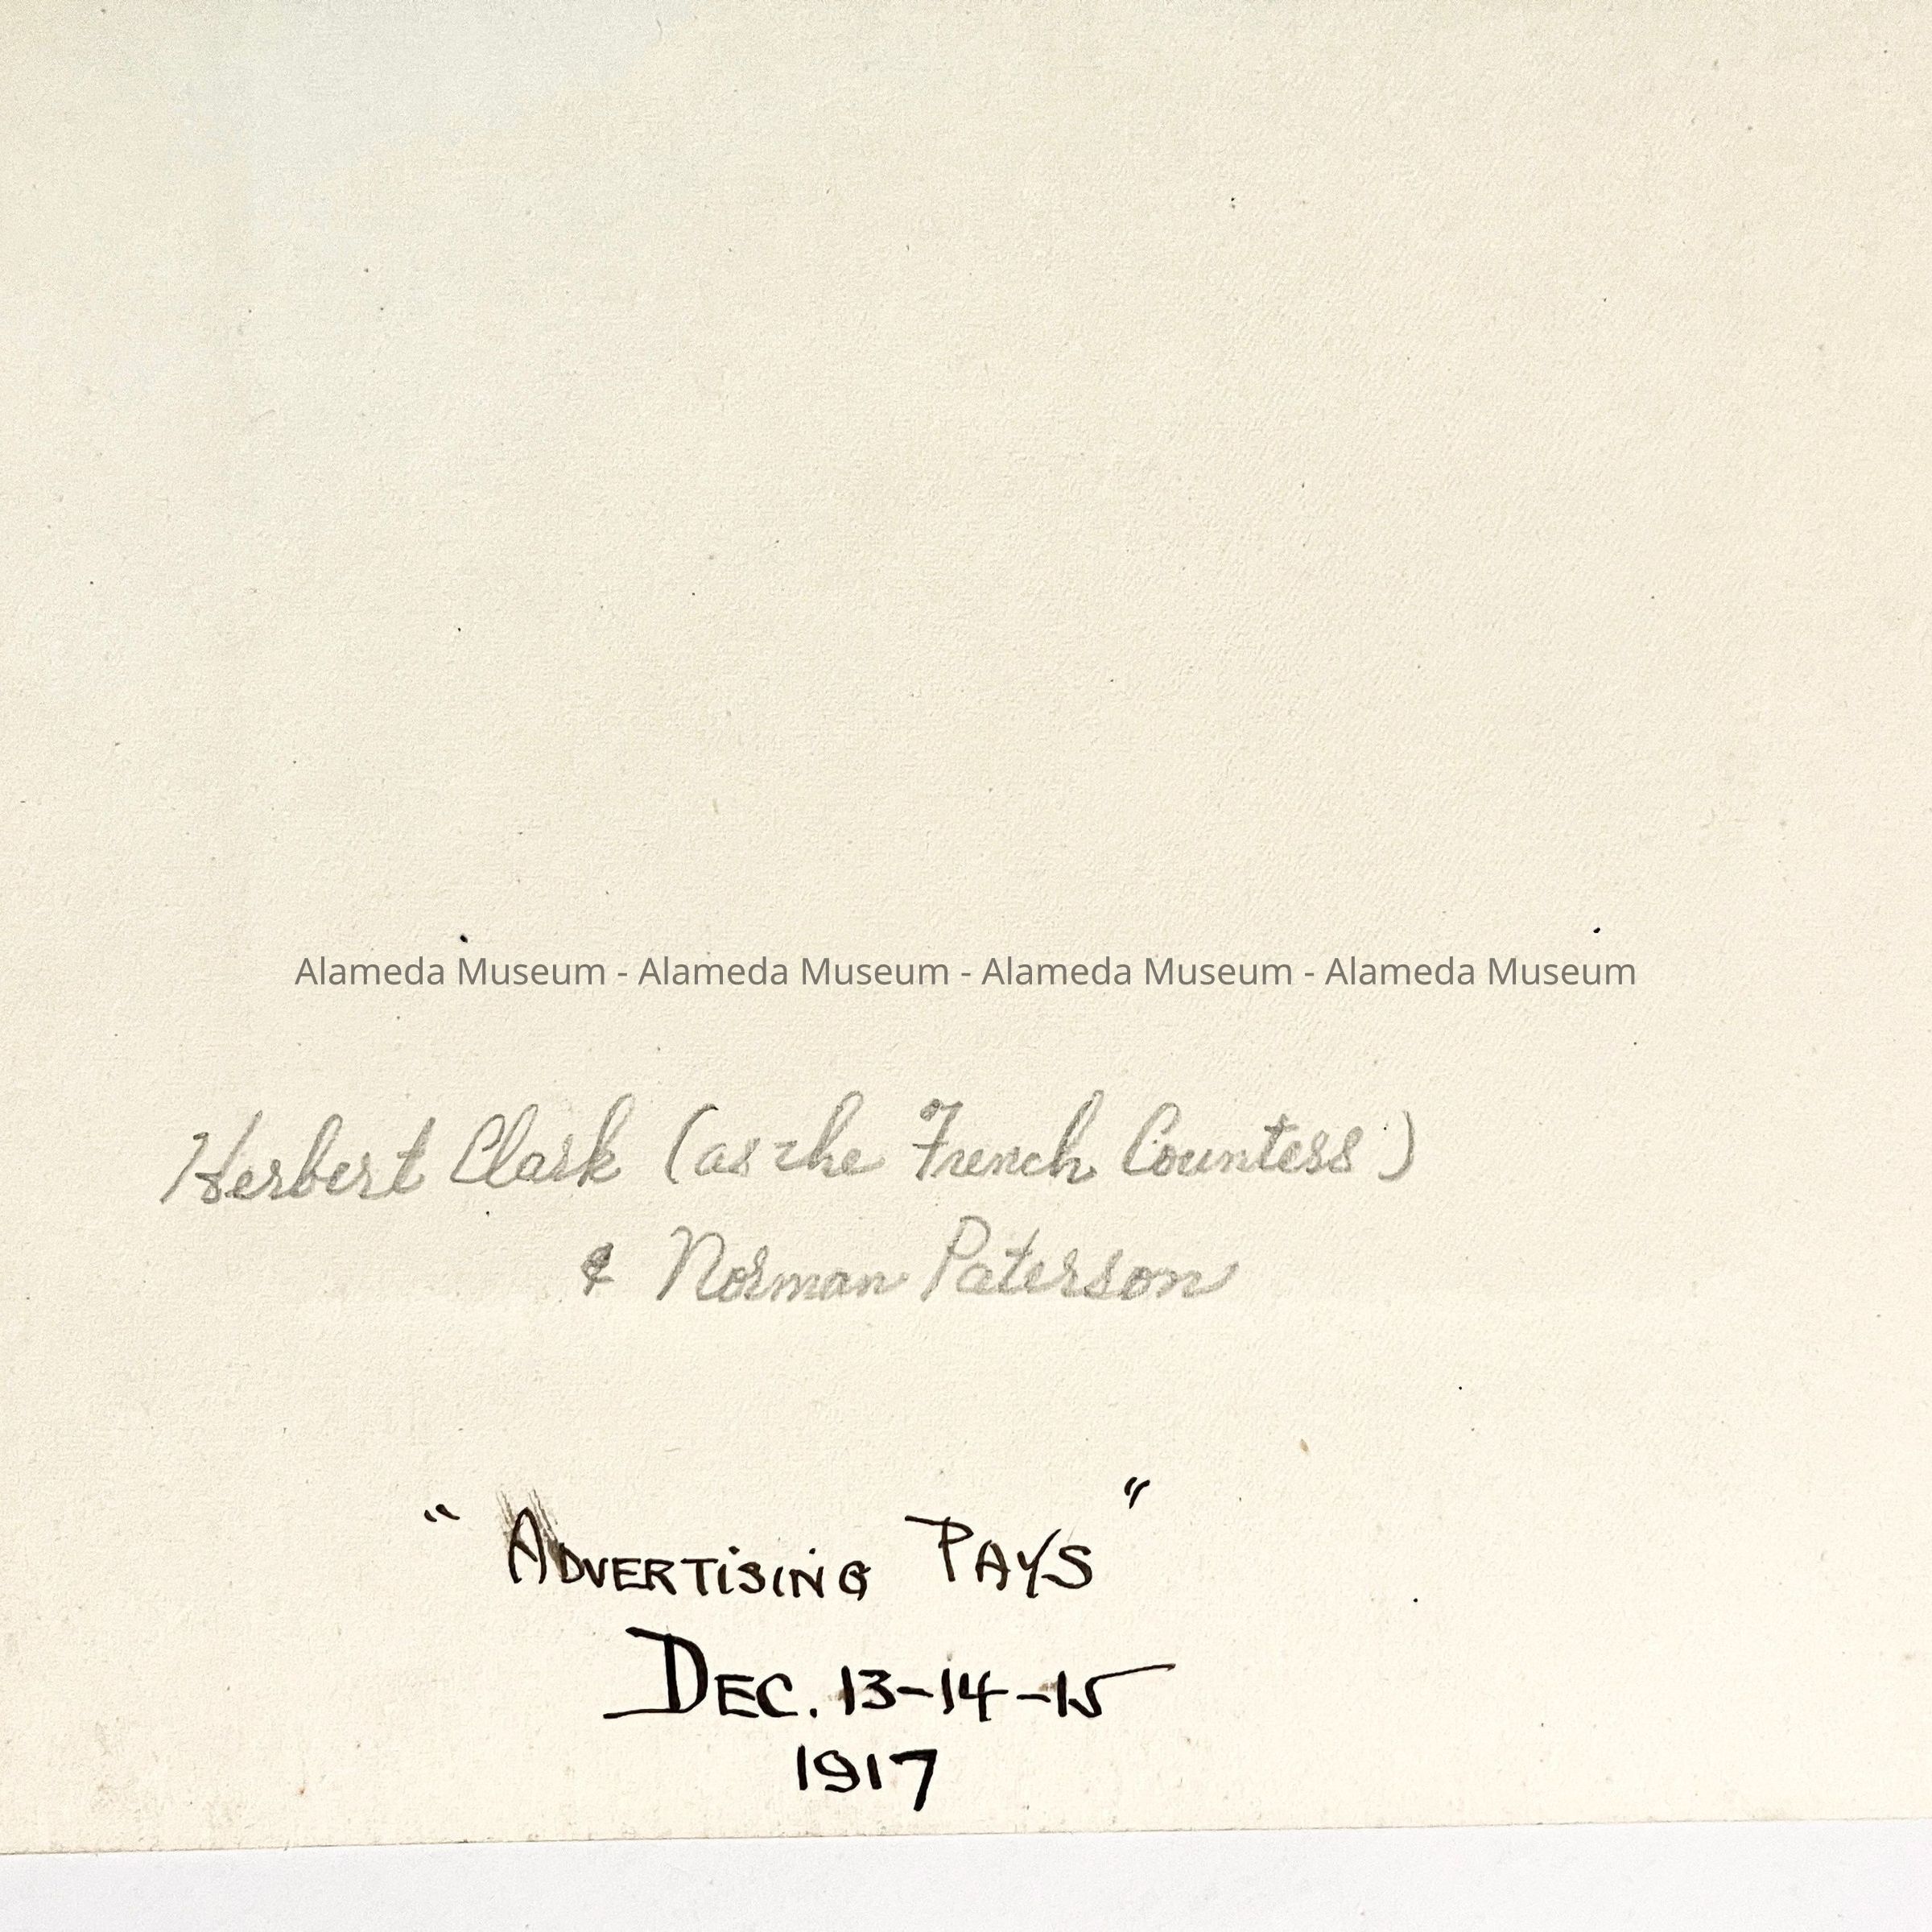 Alameda Museum - Alameda Museum - Alameda Museum - Alameda Museum
Herbert Clark (as the French Countess)
& Norman Paterson
"Advertising Pays"
Dec. 13-14-15
1917